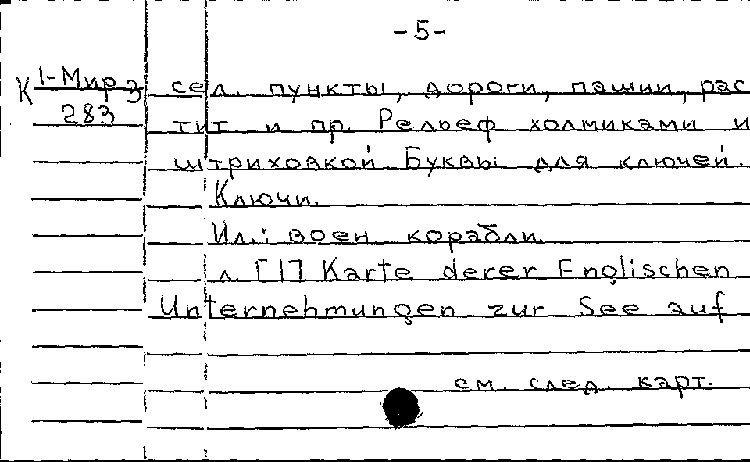 -5-
К 1-Мир 3
283
сел. пункты, дороги, пашни, рас
тит и пр. Рельеф холмиками и
штриховкой Буквы для ключей.
Ключи.
Ил.: воен корабли.
л [1] Karte derer Englischen
Unternehmungen zur See auf
см. след. карт.